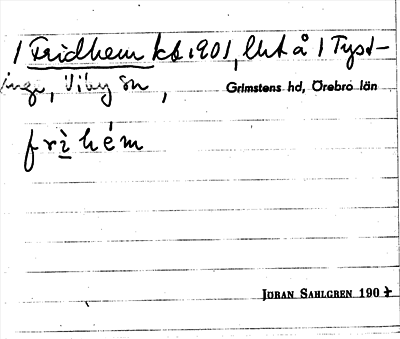 1 Fridhem kb 1901, lht å 1 Tyst-
inge, Viby sn,
Grimstens hd, Örebro län
frìhém
JÖRAN SAHLGREN 1907